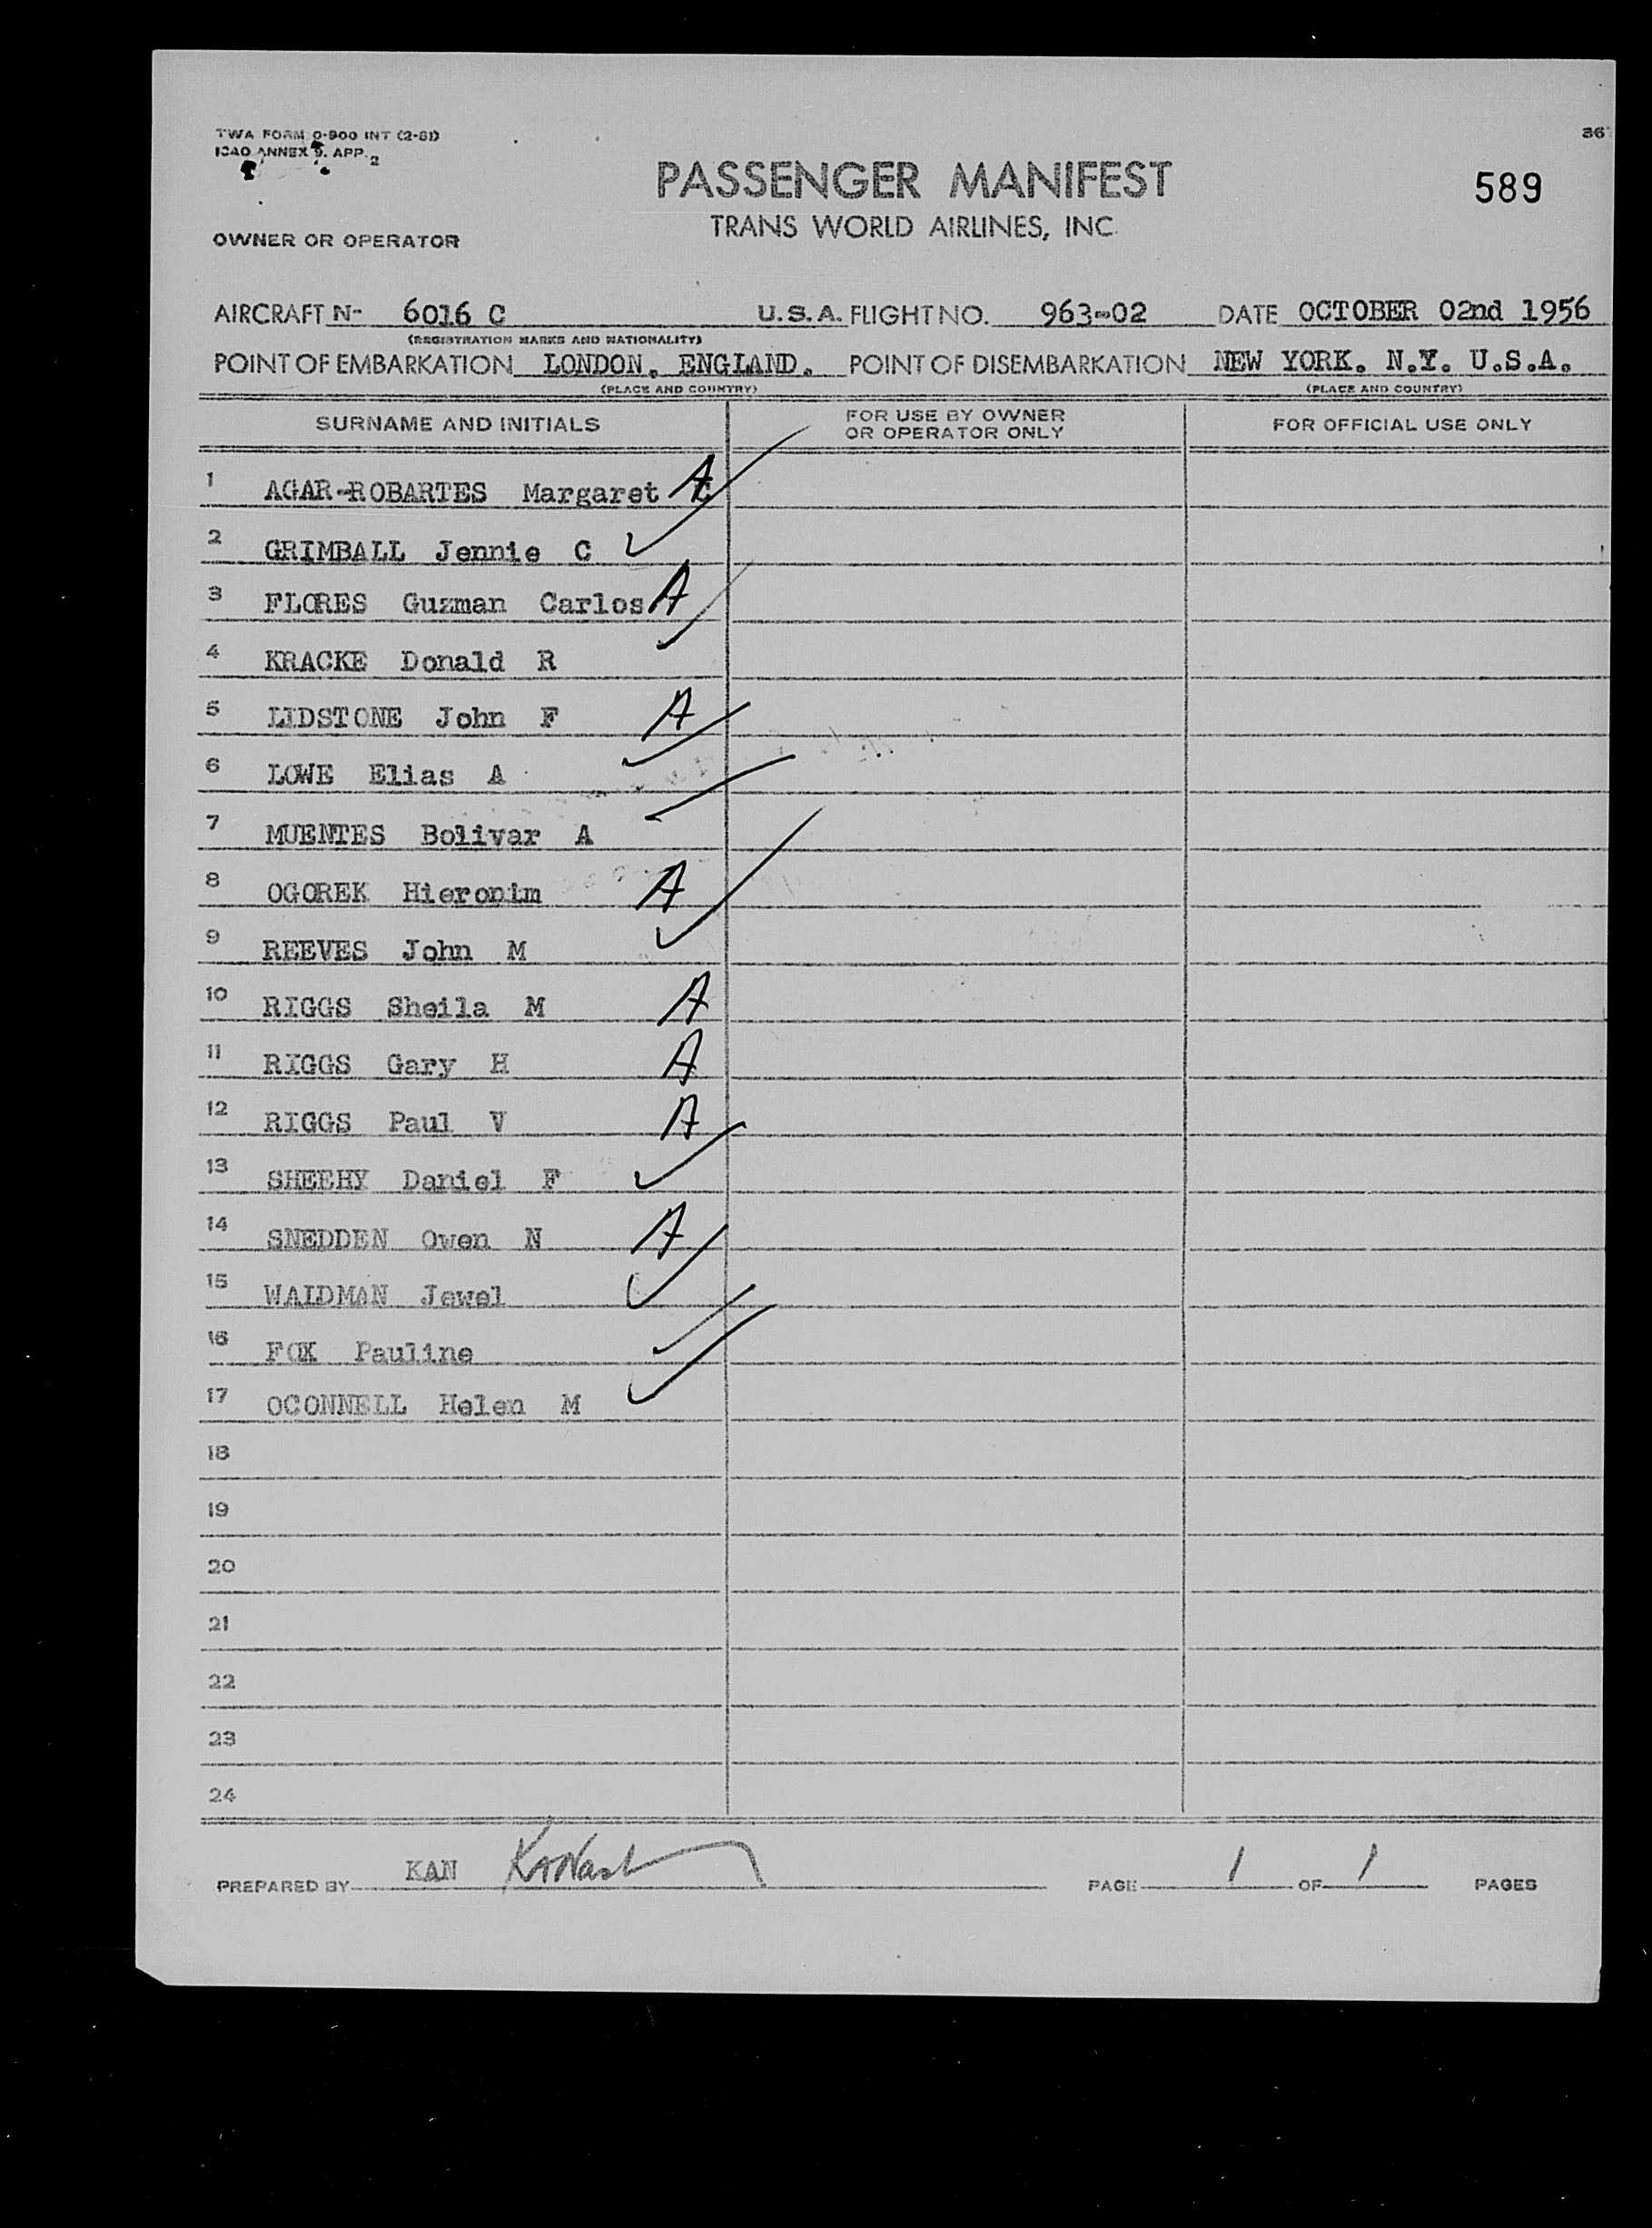 TWA FORM O-900 INT (2-61)
36
ICAO ANNEX 9. APP. 2
PASSENGER MANIFEST
589
TRANS WORLD AIRLINES, INC.
OWNER OR OPERATOR
AIRCRAFT N- 6016 C U.S.A. FLIGHT NO. 963-02 DATE OCTOBER 02nd 1956
(REGISTRATION MARKS AND NATIONALITY)
POINT OF EMBARKATION LONDON. ENGLAND. POINT OF DISEMBARKATION NEW YORK. N.Y. U.S.A.
(PLACE AND COUNTRY) (PLACE AND COUNTRY)
SURNAME AND INITIALS FOR USE BY OWNER OR OPERATOR ONLY FOR OFFICIAL USE ONLY
1 AGAR-ROBARTES Margaret A
2 GRIMBALL Jennie C ✓
3 FLORES Guzman Carlos A
4 KRACKE Donald R ✓
5 LIDSTONE John F A
6 LOWE Elias A ✓
7 MUENTES Bolivar A ✓
8 OGOREK Hieronim A
9 REEVES John M ✓
10 RIGGS Sheila M A
11 RIGGS Gary H A
12 RIGGS Paul V A
13 SHEEHY Daniel F ✓
14 SNEDDEN Owen N A
15 WAIDMAN Jewel ✓
16 FOX Pauline ✓
17 OCONNELL Helen M ✓
18
19
20
21
22
23
24
PREPARED BY KAN KANash PAGE 1 OF 1 PAGES